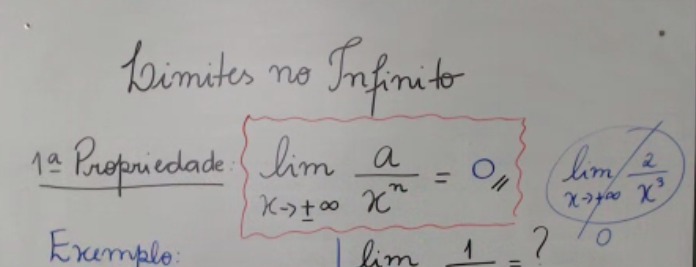 Limites no Infinito
1ª Propriedade: lim x→±∞ a/xⁿ = 0
lim x→+∞ 2/x³
0
Exemplo:
lim 1 = ?